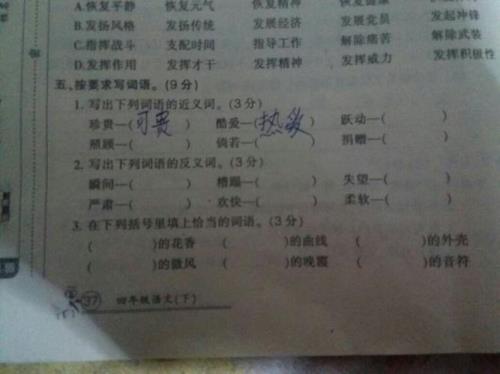 A.恢复平静 恢复元气 恢复精神 恢复健康
B.发扬风格 发扬传统 发展经济 发展党员 发起冲锋
C.指挥战斗 支配时间 指导工作 解除痛苦 解除武装
D.发挥作用 发挥才干 发挥精神 发挥威力 发挥积极性
五、按要求写词语。(9分)
1. 写出下列词语的近义词。(3分)
珍贵—(可贵) 酷爱—(热爱) 跃动—( )
照顾—( ) 倘若—( ) 捐赠—( )
2. 写出下列词语的反义词。(3分)
瞬间—( ) 糟蹋—( ) 失望—( )
严肃—( ) 欢快—( ) 柔软—( )
3. 在下列括号里填上恰当的词语。(3分)
( )的花香 ( )的曲线 ( )的外壳
( )的微风 ( )的晚霞 ( )的音符
37 四年级语文(下)